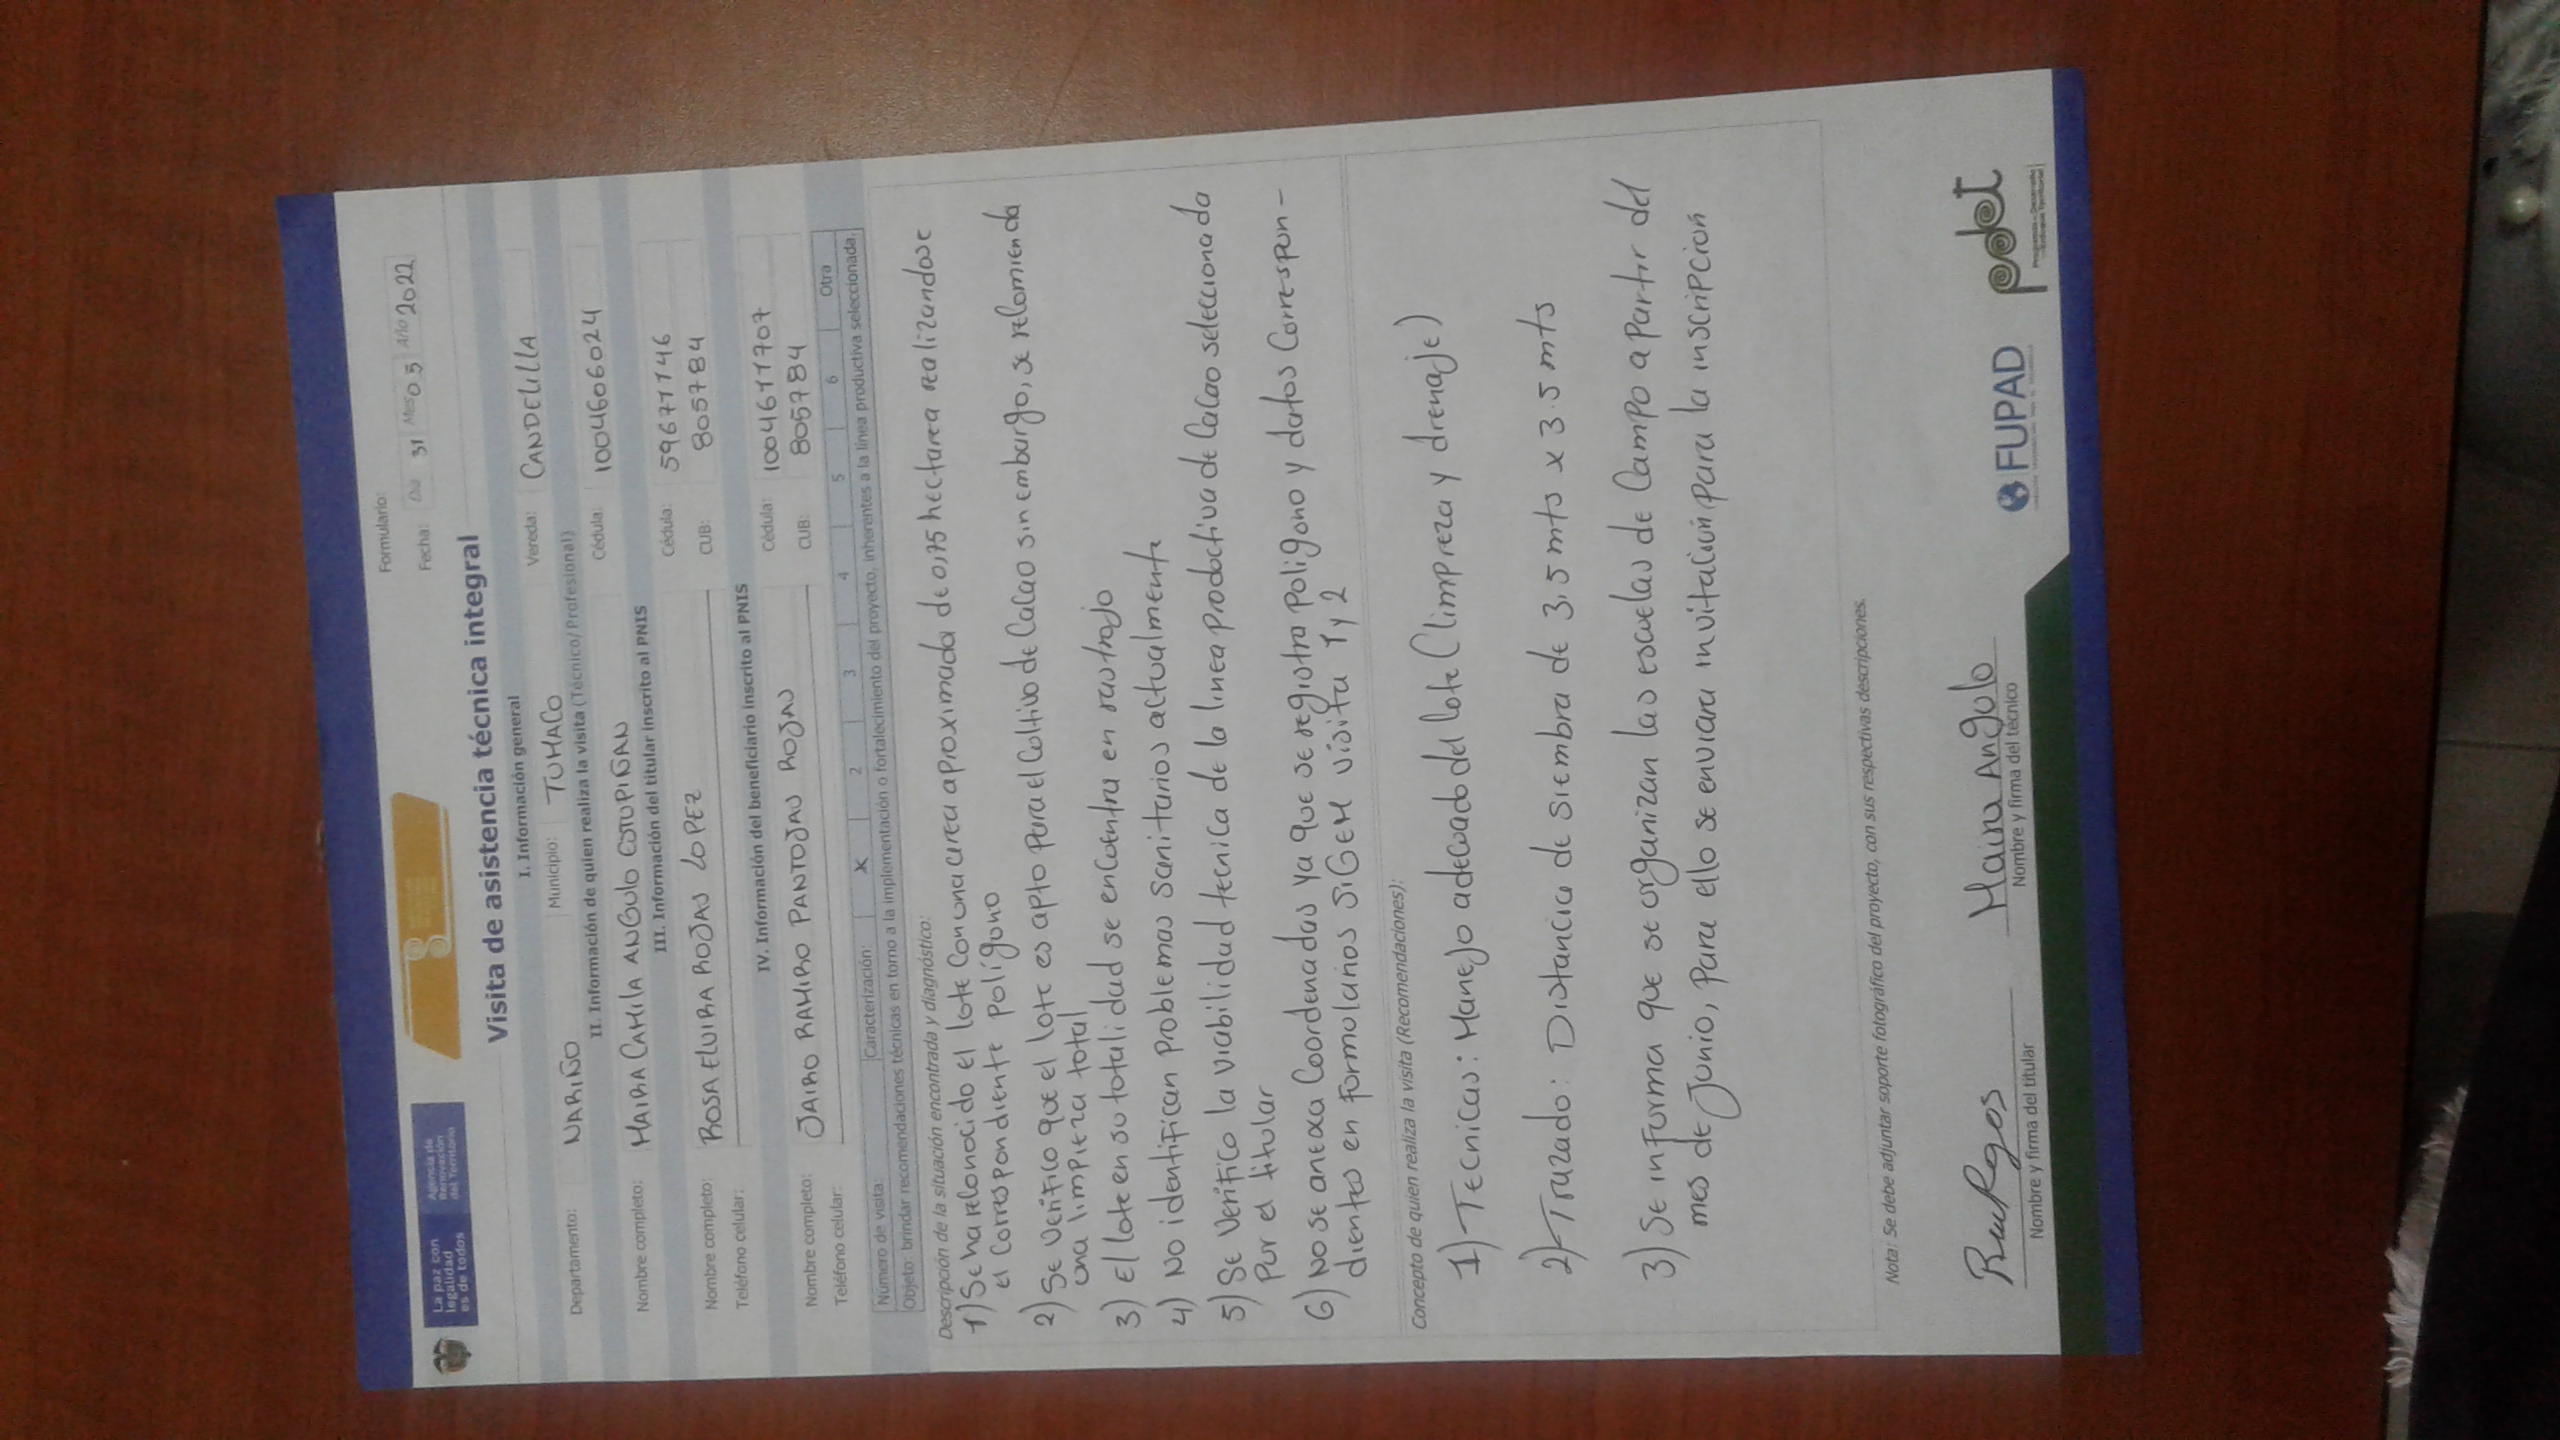 La paz con
legalidad
es de todos
Agencia de
Renovación
del Territorio
Formulario:
Fecha: Día 31 Mes 05 Año 2022
Visita de asistencia técnica integral
I. Información general
Departamento: NARIÑO Municipio: TUMACO Vereda: CANDELILLA
II. Información de quien realiza la visita (Técnico/Profesional)
Nombre completo: MAIRA CAMILA ANGULO ESTUPIÑAN Cédula: 1004606024
III. Información del titular inscrito al PNIS
Nombre completo: ROSA ELVIRA ROJAS LOPEZ Cédula: 59677146
Teléfono celular: CUB: 8057784
IV. Información del beneficiario inscrito al PNIS
Nombre completo: JAIRO RAMIRO PANTOJAS ROJAS Cédula: 1004671707
Teléfono celular: CUB: 8057784
Número de visita: Caracterización: X 2 3 4 5 6 Otra
Objeto: brindar recomendaciones técnicas en torno a la implementación o fortalecimiento del proyecto, inherentes a la línea productiva seleccionada.
Descripción de la situación encontrada y diagnóstico:
1) Se ha reconocido el lote con una area aproximada de 0,75 hectarea realizandose
el correspondiente polígono
2) Se verifico que el lote es apto para el cultivo de cacao sin embargo, se recomienda
una limpieza total
3) El lote en su totalidad se encuentra en rastrojo
4) No identifican problemas sanitarios actualmente
5) Se verifico la viabilidad tecnica de la linea productiva de cacao seleccionada
por el titular
6) No se anexa coordenadas ya que se registra poligono y datos correspon-
dientes en formularios SIGEM visita 1 y 2
Concepto de quien realiza la visita (Recomendaciones):
1) Tecnicas: Manejo adecuado del lote (limpieza y drenaje)
2) Trazado: Distancia de siembra de 3.5 mts x 3.5 mts
3) Se informa que se organizan las escuelas de campo a partir del
mes de Junio, para ello se enviara invitación para la inscripción
Nota: Se debe adjuntar soporte fotográfico del proyecto, con sus respectivas descripciones.
Maira Angulo
Nombre y firma del titular Nombre y firma del técnico
FUPAD
pdet